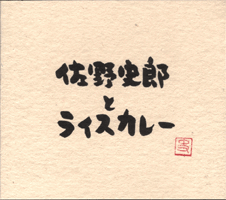 佐野史郎
と
ライスカレー